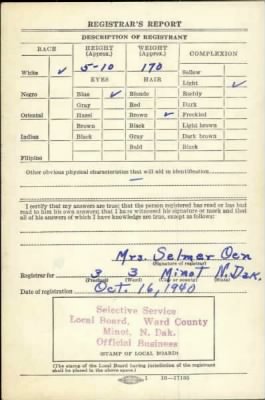 REGISTRAR'S REPORT
DESCRIPTION OF REGISTRANT
RACE HEIGHT (Approx.) WEIGHT (Approx.) COMPLEXION
White ✓ 5-10 170 Sallow
EYES HAIR Light ✓
Negro Blue ✓ Blonde Ruddy
Gray Red Dark
Oriental Hazel Brown ✓ Freckled
Brown Black Light brown
Indian Black Gray Dark brown
Bald Black
Filipino
Other obvious physical characteristics that will aid in identification
—
I certify that my answers are true; that the person registered has read or has had
read to him his own answers; that I have witnessed his signature or mark and that
all of his answers of which I have knowledge are true, except as follows:
Mrs. Selmer Oen
(Signature of registrar)
Registrar for 3 3 Minot N. Dak.
(Precinct) (Ward) (City or county) (State)
Date of registration Oct. 16, 1940
Selective Service
Local Board, Ward County
Minot, N. Dak.
Official Business
(STAMP OF LOCAL BOARD)
(The stamp of the Local Board having jurisdiction of the registrant
shall be placed in the above space.)
16-17105